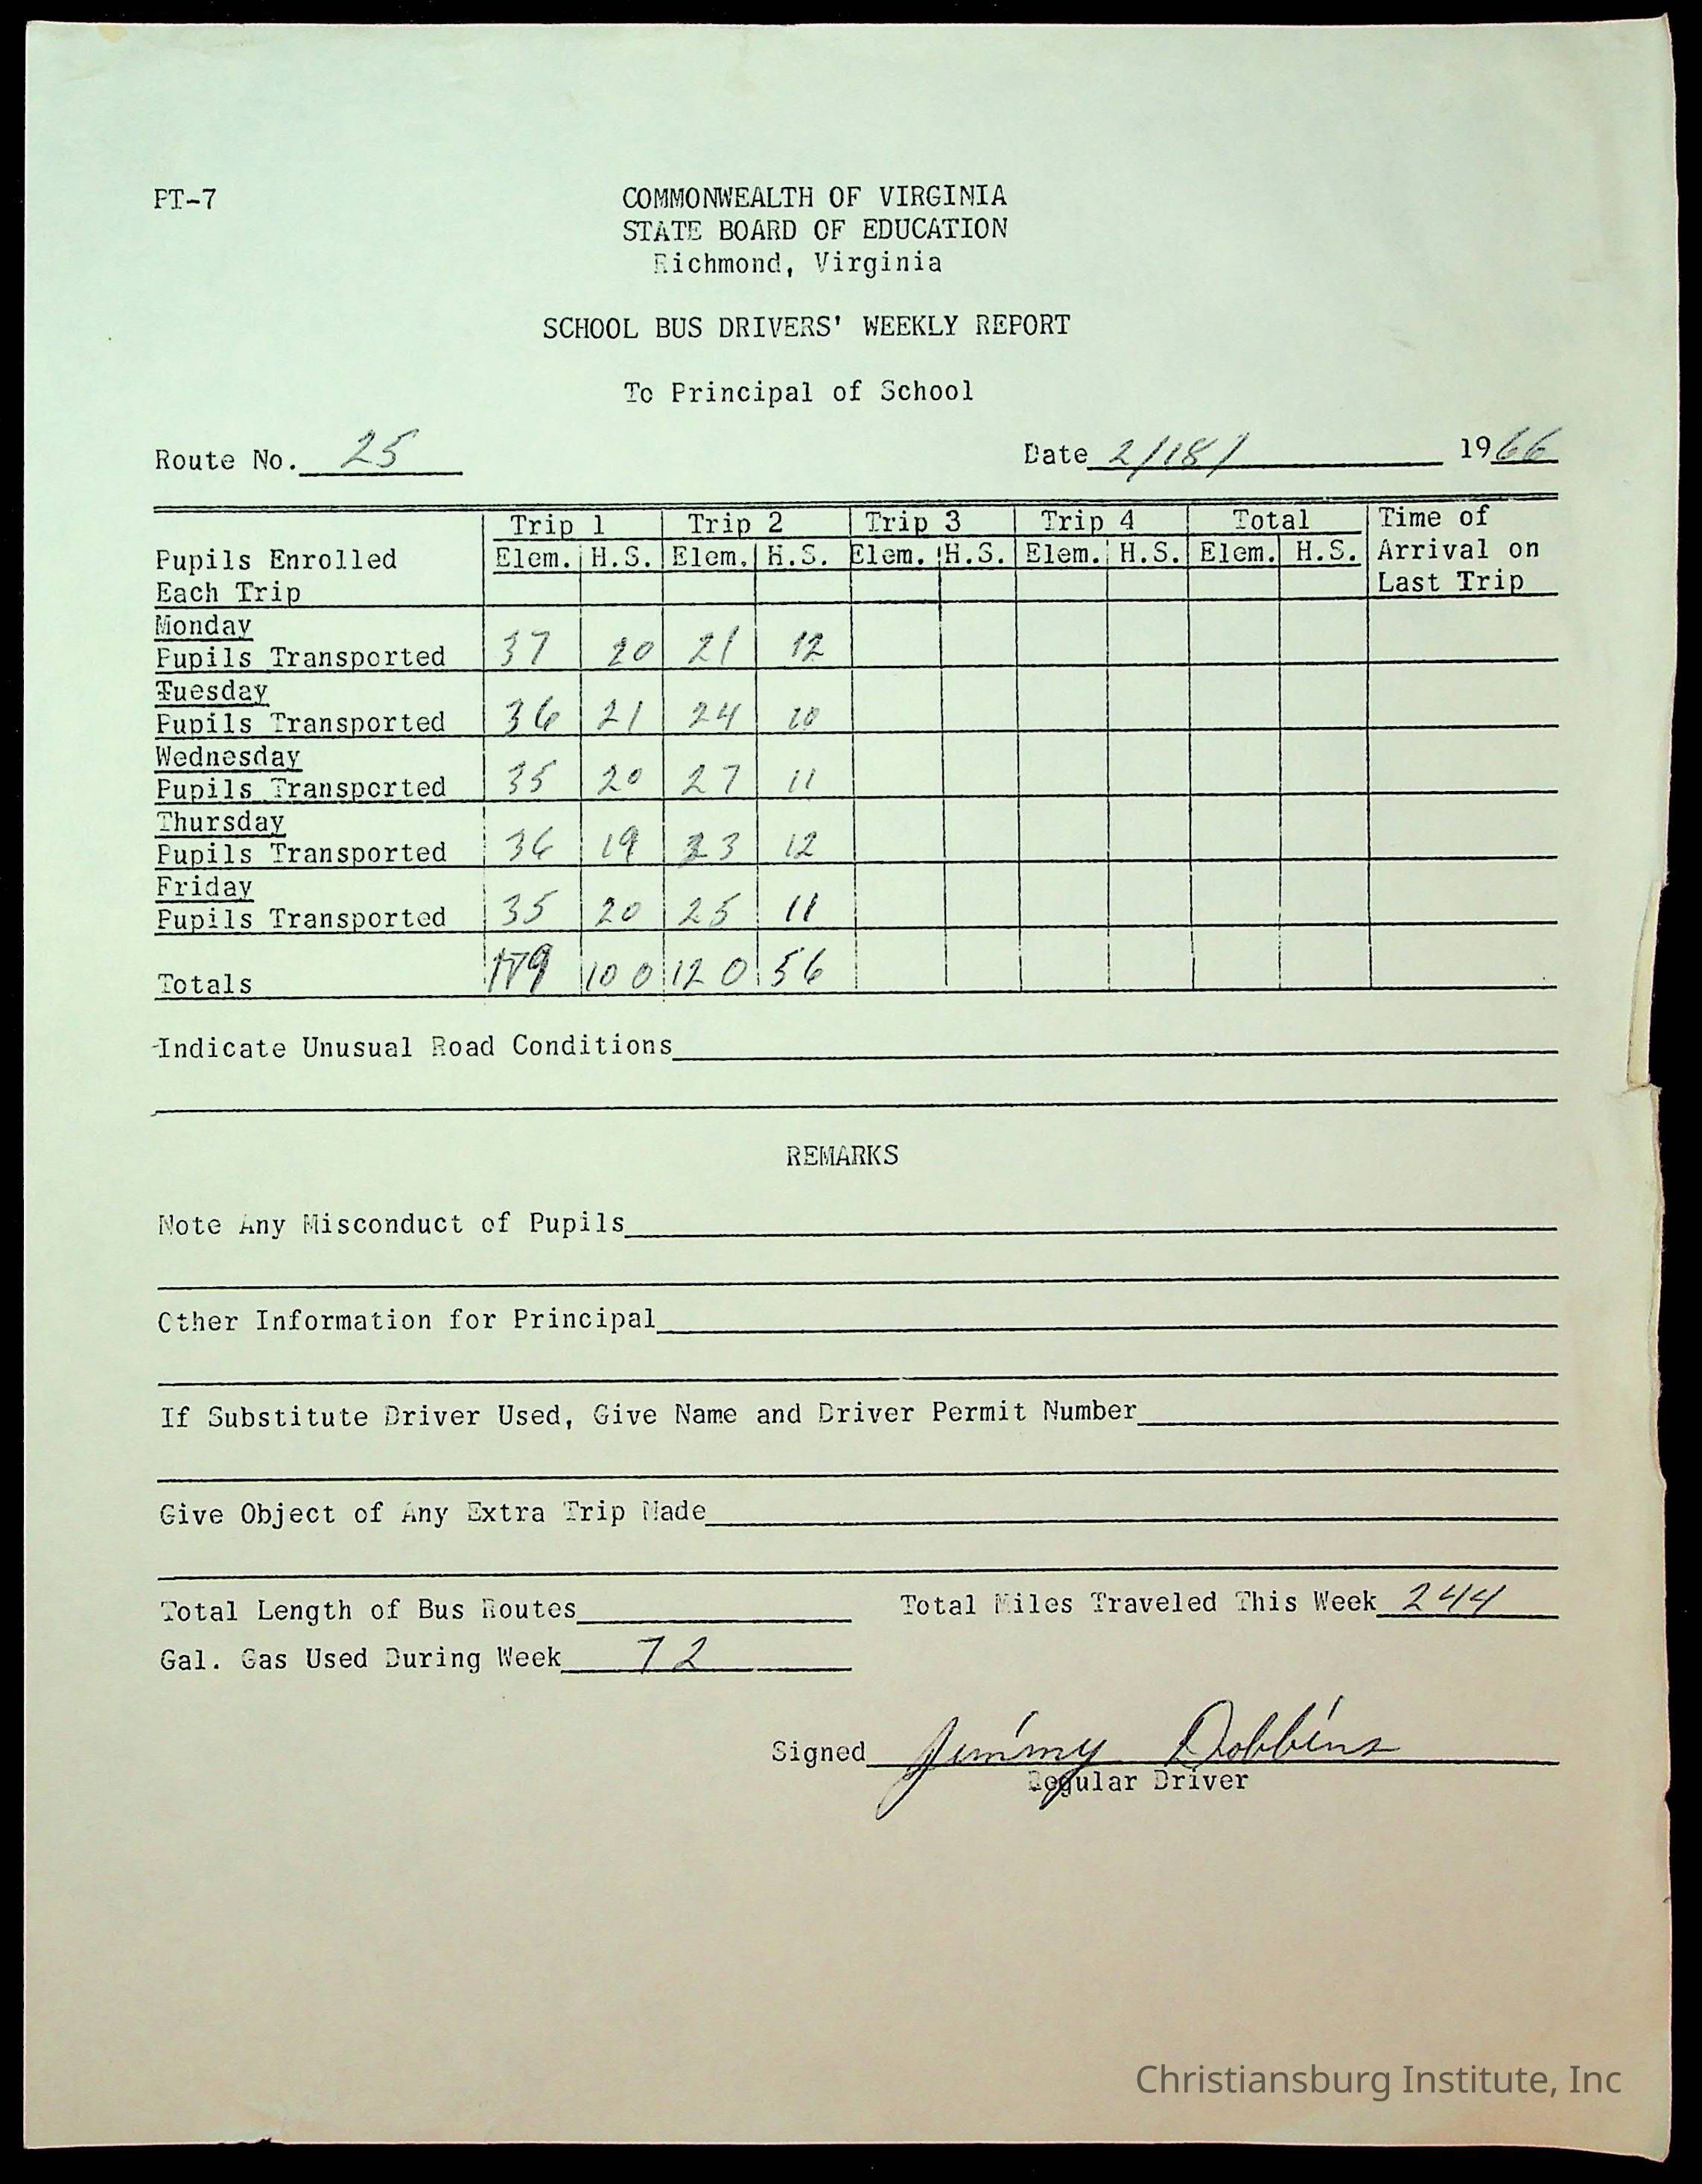 PT-7
COMMONWEALTH OF VIRGINIA
STATE BOARD OF EDUCATION
Richmond, Virginia
SCHOOL BUS DRIVERS' WEEKLY REPORT
To Principal of School
Route No. 25 Date 2/18/ 1966
Trip 1 Trip 2 Trip 3 Trip 4 Total Time of
Pupils Enrolled Elem. H.S. Elem. H.S. Elem. H.S. Elem. H.S. Elem. H.S. Arrival on
Each Trip Last Trip
Monday
Pupils Transported 37 20 21 12
Tuesday
Pupils Transported 36 21 24 10
Wednesday
Pupils Transported 35 20 27 11
Thursday
Pupils Transported 36 19 23 12
Friday
Pupils Transported 35 20 25 11
Totals 179 100 120 56
Indicate Unusual Road Conditions
REMARKS
Note Any Misconduct of Pupils
Other Information for Principal
If Substitute Driver Used, Give Name and Driver Permit Number
Give Object of Any Extra Trip Made
Total Length of Bus Routes Total Miles Traveled This Week 244
Gal. Gas Used During Week 72
Signed Jimmy Dobbins
Regular Driver
Christiansburg Institute, Inc